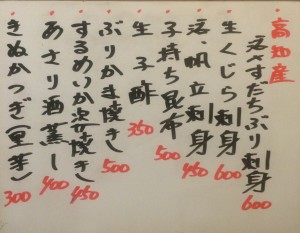 高知産
活すだちぶり刺身 600
生くじら刺身 600
活、帆立刺身 450
子持ち昆布 500
生子酢 350
ぶりかま焼き 500
するめいか姿焼き 450
あさり酒蒸し 400
きぬかつぎ(里芋) 300